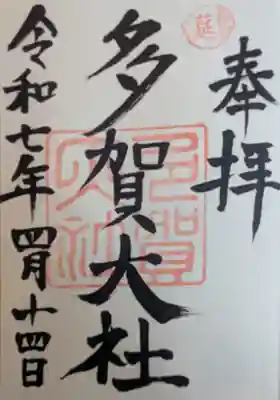 奉拝
延
多賀大社
令和七年四月十四日